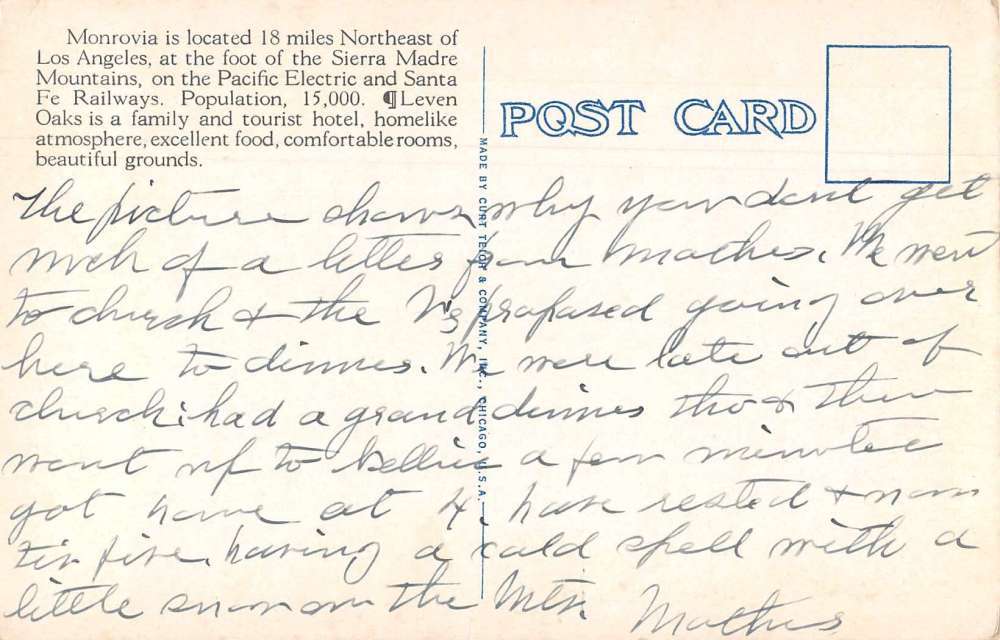 Monrovia is located 18 miles Northeast of
Los Angeles, at the foot of the Sierra Madre
Mountains, on the Pacific Electric and Santa
Fe Railways. Population, 15,000. ¶Leven
Oaks is a family and tourist hotel, homelike
atmosphere, excellent food, comfortable rooms,
beautiful grounds.
POST CARD
MADE BY CURT TEICH & COMPANY, INC., CHICAGO, U.S.A.
The picture shows why you dont get
much of a letter from Mother. We went
to church & the N's proposed going over
here to dinner. We were late out of
church; had a grand dinner tho & then
went up to Nellie a few minutes
got home at 4, have rested & now
tis five. having a cold spell with a
little snow on the Mts.
Mother